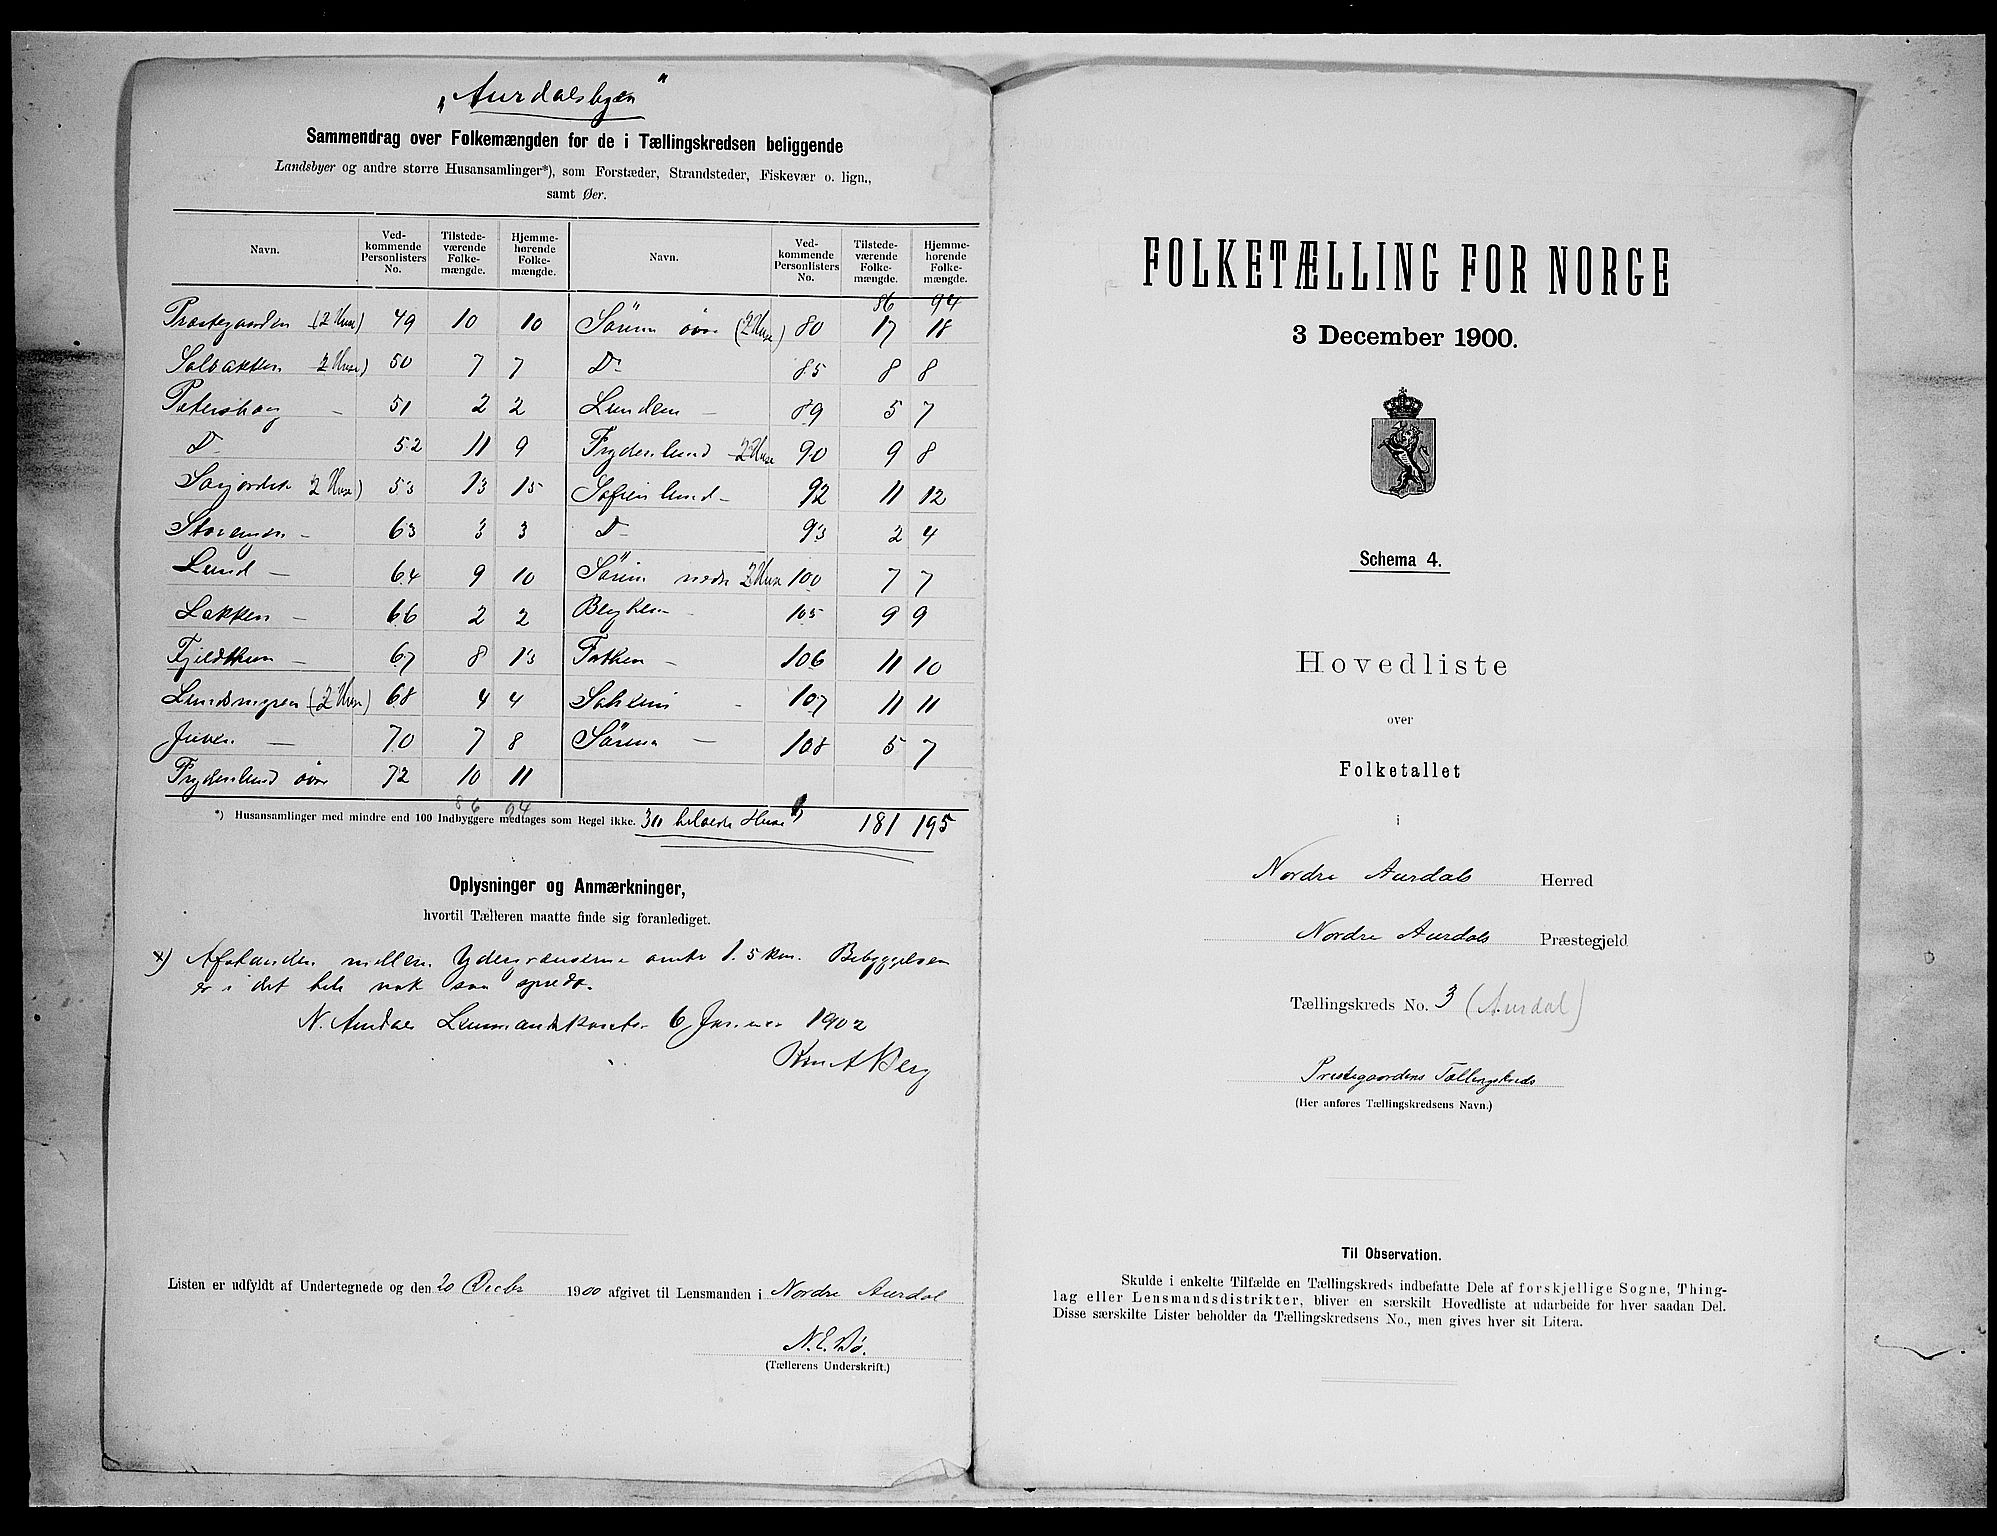 „Aurdalsbyen“
Sammendrag over Folkemængden for de i Tællingskredsen beliggende
Landsbyer og andre større Husansamlinger*), som Forstæder, Strandsteder, Fiskevær o. lign.,
samt Øer.
Navn. Vedkommende Personlisters No. Tilstedeværende Folkemængde. Hjemmehørende Folkemængde. Navn. Vedkommende Personlisters No. Tilstedeværende Folkemængde. Hjemmehørende Folkemængde.
86 94
Præstegaarden (2 Huse) 49 10 10 Sörum övre (2 Huse) 80 17 18
Solbakken 2 Huse) 50 7 7 Do 85 8 8
Petershaug - 51 2 2 Lunden - 89 5 7
Do 52 11 9 Frydenlund 2 Huse 90 9 8
2 Huse) 53 13 15 Sofienlund - 92 11 12
63 3 3 Do 93 2 4
Lund - 64 9 10 Sörum nedre 2 Huse 100 7 7
Bakken - 66 2 2 Bergheim - 105 9 9
Fjeldheim - 67 8 13 106 11 10
Lundsmyren (2 Huse) 68 4 4 Solheim - 107 11 11
Juven - 70 7 8 Sörum - 108 5 7
Frydenlund övre 72 10 11
86 94
*) Husansamlinger med mindre end 100 Indbyggere medtages som Regel ikke. 30 beboede Huse 181 195
Oplysninger og Anmærkninger,
hvortil Tælleren maatte finde sig foranlediget.
x) Afstanden mellem Ydergrænserne omtr 1.5 km. Bebyggelsen
er i det hele nok saa spredt.
N. Aurdal Lensmandskontor 6 Januar 1902
Knut Berg
Listen er udfyldt af Undertegnede og den 20 Decbr 1900 afgivet til Lensmanden i Nordre Aurdal
N. E. Bø.
(Tællerens Underskrift.)
FOLKETÆLLING FOR NORGE
3 December 1900.
Schema 4.
Hovedliste
over
Folketallet
i
Nordre Aurdals Herred
Nordre Aurdals Præstegjeld
Tællingskreds No. 3 (Aurdal)
Prestegaardens Tællingskreds
(Her anføres Tællingskredsens Navn.)
Til Observation.
Skulde i enkelte Tilfælde en Tællingskreds indbefatte Dele af forskjellige Sogne, Thing-
lag eller Lensmandsdistrikter, bliver en særskilt Hovedliste at udarbeide for hver saadan Del.
Disse særskilte Lister beholder da Tællingskredsens No., men gives hver sit Litera.